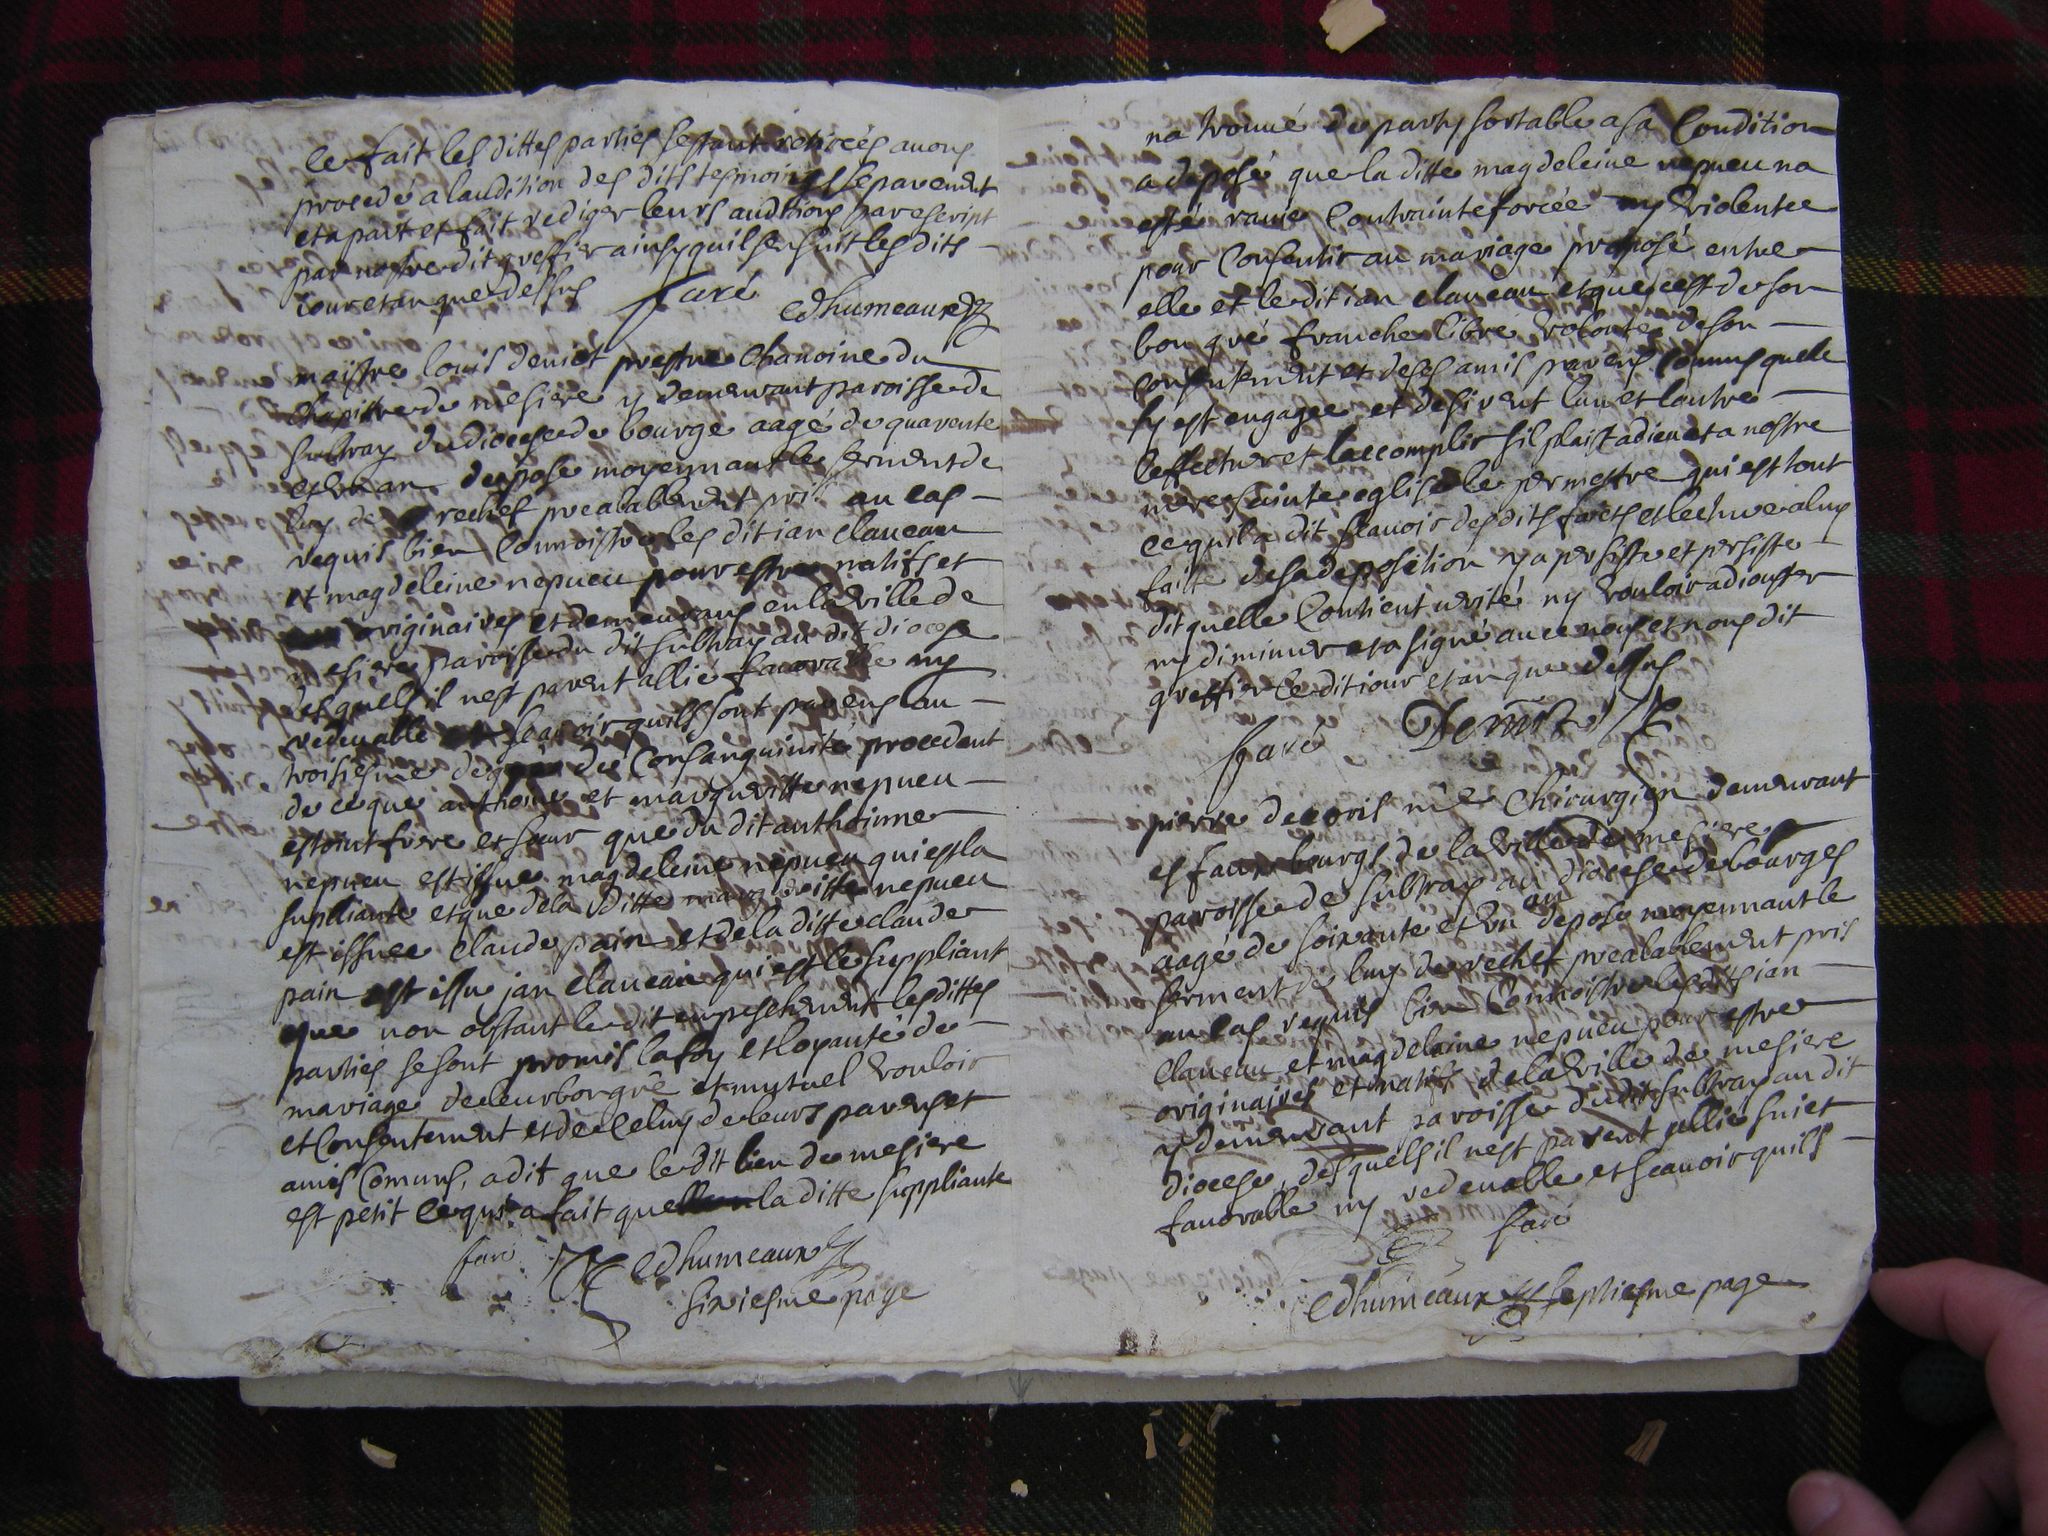 ce fait les dittes parties sestant retirées auons
procedé a laudition des dits tesmoings separement
et apart et fait rediger leurs auditions par escript
par nostre dit greffier ainsy quil sensuit lesdits
iour et an que dessus
faré edhumeaux
maistre louis deniot prestre chanoine du
chapitre de mesiere y demeurant paroisse de
subtray du diocese de bourge aagé de quarente
et un an depose moyennant le serment de
luy de rechef prealablement pris au cas
requis bien connoistre les dit ian claueau
et magdeleine nepueu pour estre natifs et
originaires et demeurans en la ville de
mesiere paroisse du dit subtray au dit diocese
desquels il nest parent allié fauorable ny
redeuable et scauoir quils sont parens au
troisiesme degré de consanguinité procedent
de ce que anthoine et margueritte nepueu
estoint frere et sœur que du dit anthoinne
nepueu est issue magdeleine nepueu qui est la
supliante et que de la ditte margueritte nepueu
est issuee claude pain et de la ditte claude
pain est issu jan claueau qui est le suppliant
que non obstant le dit empeschement les dittes
parties se sont promis la foy et loyauté de
mariage de leur bon gré et mutuel vouloir
et consentement et de celuy de leurs parens et
amis comuns, a dit que le dit lieu de mesiere
est petit ce qui a fait que la ditte suppliante
faré edhumeaux
sixiesme page
na trouué de party sortable a sa condition
a deposé que la ditte magdeleine nepueu na
esté rauie contrainte forcée ny violentee
pour consentir au mariage proposé entre
elle et le dit ian claueau et que cest de son
bon gré franche libre volonté de son
consentement et de ses amis parens comuns quelle
sy est engagee et desirent lun et lautre
leffectuer et laccomplir sil plaist a dieu et a nostre
mere sainte eglise le permettre qui est tout
ce quil a dit scauoir des dits faicts et lecture a luy
faitte de sa deposition y a persisté et persiste
dit quelle contient verité ny vouloir adiouster
ny diminuer et a signé auec nous et nous dit
greffier le dit iour et an que dessus
faré Deniot
pierre decoris me chirurgien demeurant
es faux bourgs de la ville de mesiere
paroisse de subtray au diocese de bourges
aagé de soixante et un an depose moyennant le
serment de luy de rechef prealablement pris
au cas requis bien connoistre les dits ian
claueau et magdelaine nepueu pour estre
originaires et natifs de la ville de mesiere
y demeurant paroisse du dit subtray au dit
diocese, desquels il nest parent allié suiet
fauorable ny redeuable et scauoir quils
faré
edhumeaux septiesme page